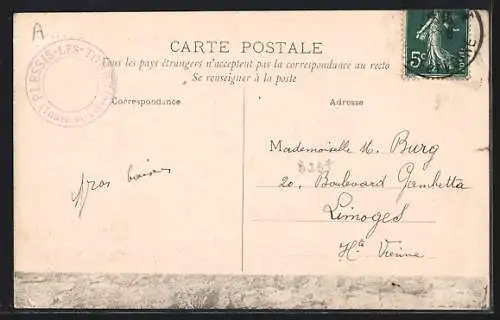 A
PLESSIS-LES-TOURS
CARTE POSTALE
Tous les pays étrangers n'acceptent pas la correspondance au recto
Se renseigner à la poste
5c
Correspondance
Adresse
Mademoiselle H. Burg
20, Boulevard Gambetta
Limoges
Hte Vienne
Gros baisers